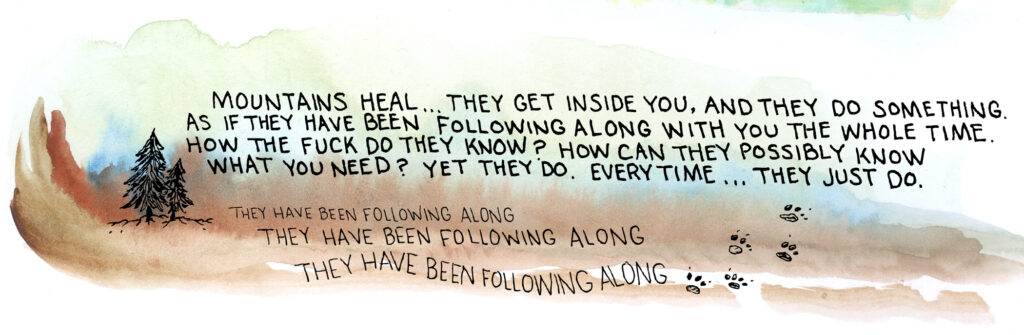 MOUNTAINS HEAL... THEY GET INSIDE YOU, AND THEY DO SOMETHING.
AS IF THEY HAVE BEEN FOLLOWING ALONG WITH YOU THE WHOLE TIME.
HOW THE FUCK DO THEY KNOW? HOW CAN THEY POSSIBLY KNOW
WHAT YOU NEED? YET THEY DO. EVERYTIME... THEY JUST DO.
THEY HAVE BEEN FOLLOWING ALONG
THEY HAVE BEEN FOLLOWING ALONG
THEY HAVE BEEN FOLLOWING ALONG